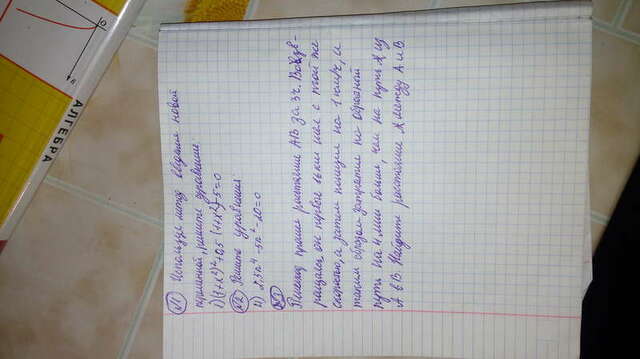 АЛГЕБРА
№1 Используя метод введения новой
переменной, решите уравнение:
(1+x²)²+0,5(1+x²)-5=0
№2 Решите уравнения
2,5x⁴-5x²-20=0
№3
Пешеход прошел расстояние АВ за 3ч. Возв-
ращаясь, он первые км шел с той же
скоростью, а затем понизил на 1 км/ч, и
таким образом затратил на обратный
путь на 4 мин больше, чем на путь из
А в В. Найдите расстояние между А и В